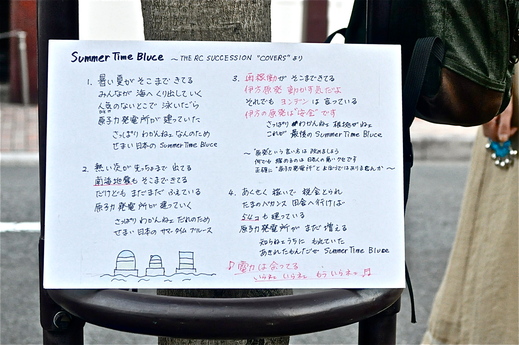 Summer Time Bluce ～THE RC SUCCESSION "COVERS"より
1. 暑い夏が そこまできてる
みんなが 海へくり出していく
人気のないとこで 泳いだら
原子力発電所が 建っていた
さっぱり わかんねェ なんのため
せまい日本の Summer Time Bluce
2. 熱い炎が 先っちょまで 出てる
南海地震も そこまできてる
だけども まだまだ ふえている
原子力発電所が 建っていく
さっぱり わかんねェ だれのため
せまい日本の サマータイムブルース
3. 再稼働が そこまできてる
伊方原発 動かす気だよ
それでも ヨンデンは 言っている
伊方の原発は"安全"です
さっぱり わかんねェ 根拠がねェ
これが 最後の Summer Time Bluce
～"原発という言い方は 改めましょう
何でも 縮めるのは 日本人の悪いクセです
正確に "原子力発電所"と
4. あくせく 稼いで 税金とられ
たまのバカンス 田舎へ行けば
54コも 建っている
原子力発電所が まだ 増える
知らねェうちに もれていた
あきれたもんだな Summer Time Bluce
♪電力は 余ってる
いらねェ いらねェ もう いらねェ ♬